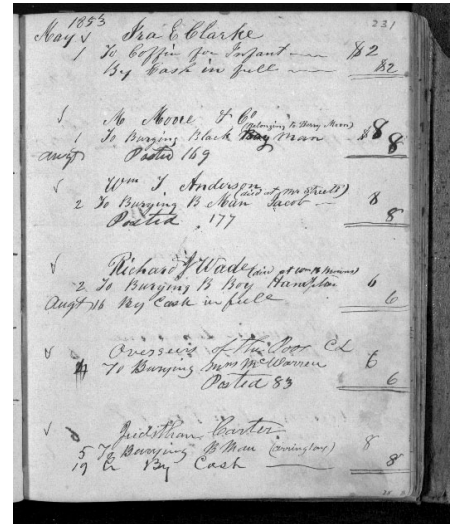 1853 231
May √ Ira E Clarke
1 To Coffin for Infant $2
By Cash in full $2
√ M Moore & Co
(belonging to Henry Moon)
1 To Burying Black Man $8
Augt Posted 169 8
√ Wm T Anderson
(died at Mr Streett)
2 To Burying B Man Jacob 8
Posted 177 8
√ Richard J Wade (died at Wm B )
2 To Burying B Boy Hampton 6
Augt 16 By Cash in full 6
√ Overseers of the Poor C L
4 To Burying Mrs McWarren 6
Posted 83 6
√ Carter
5 To Burying B Man (Arrington) 8
19 Cr By Cash 8